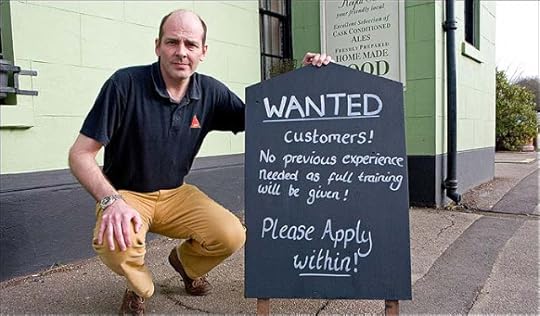 your friendly local
Excellent Selection of
CASK CONDITIONED
ALES
FRESHLY PREPARED
HOME MADE
FOOD
WANTED
Customers!
No previous experience
needed as full training
will be given!
Please Apply
within!